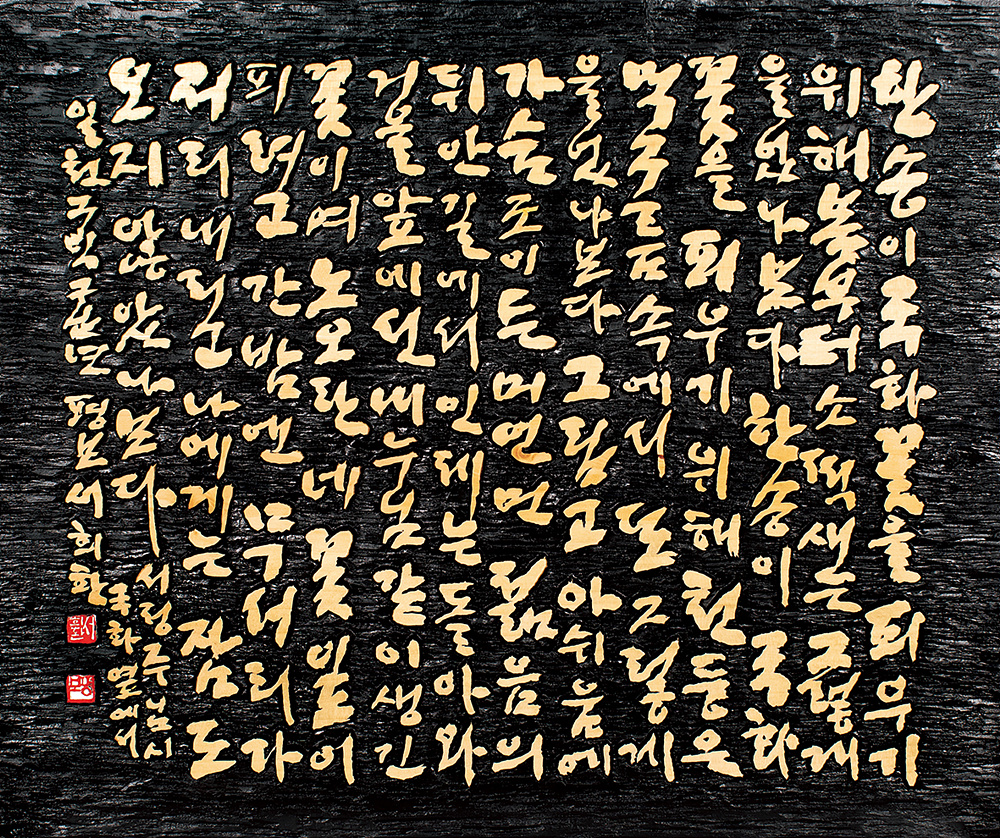 한송이 국화꽃을 피우기
위해 봄부터 소쩍새는 그렇게
울었나보다 한송이 국화
꽃을 피우기 위해 천둥은
먹구름 속에서 또 그렇게
울었나보다 그립고 아쉬움에
가슴 조이든 머언먼 젊음의
뒤안길에서 인제는 돌아와
거울 앞에 선 내 누님같이 생긴
꽃이여 노오란 네 꽃잎이
피려고 간밤엔 무서리가
저리 내리고 나에게는 잠도
오지 않았나보다
서정주님 시
국화 옆에서
평보 서희환